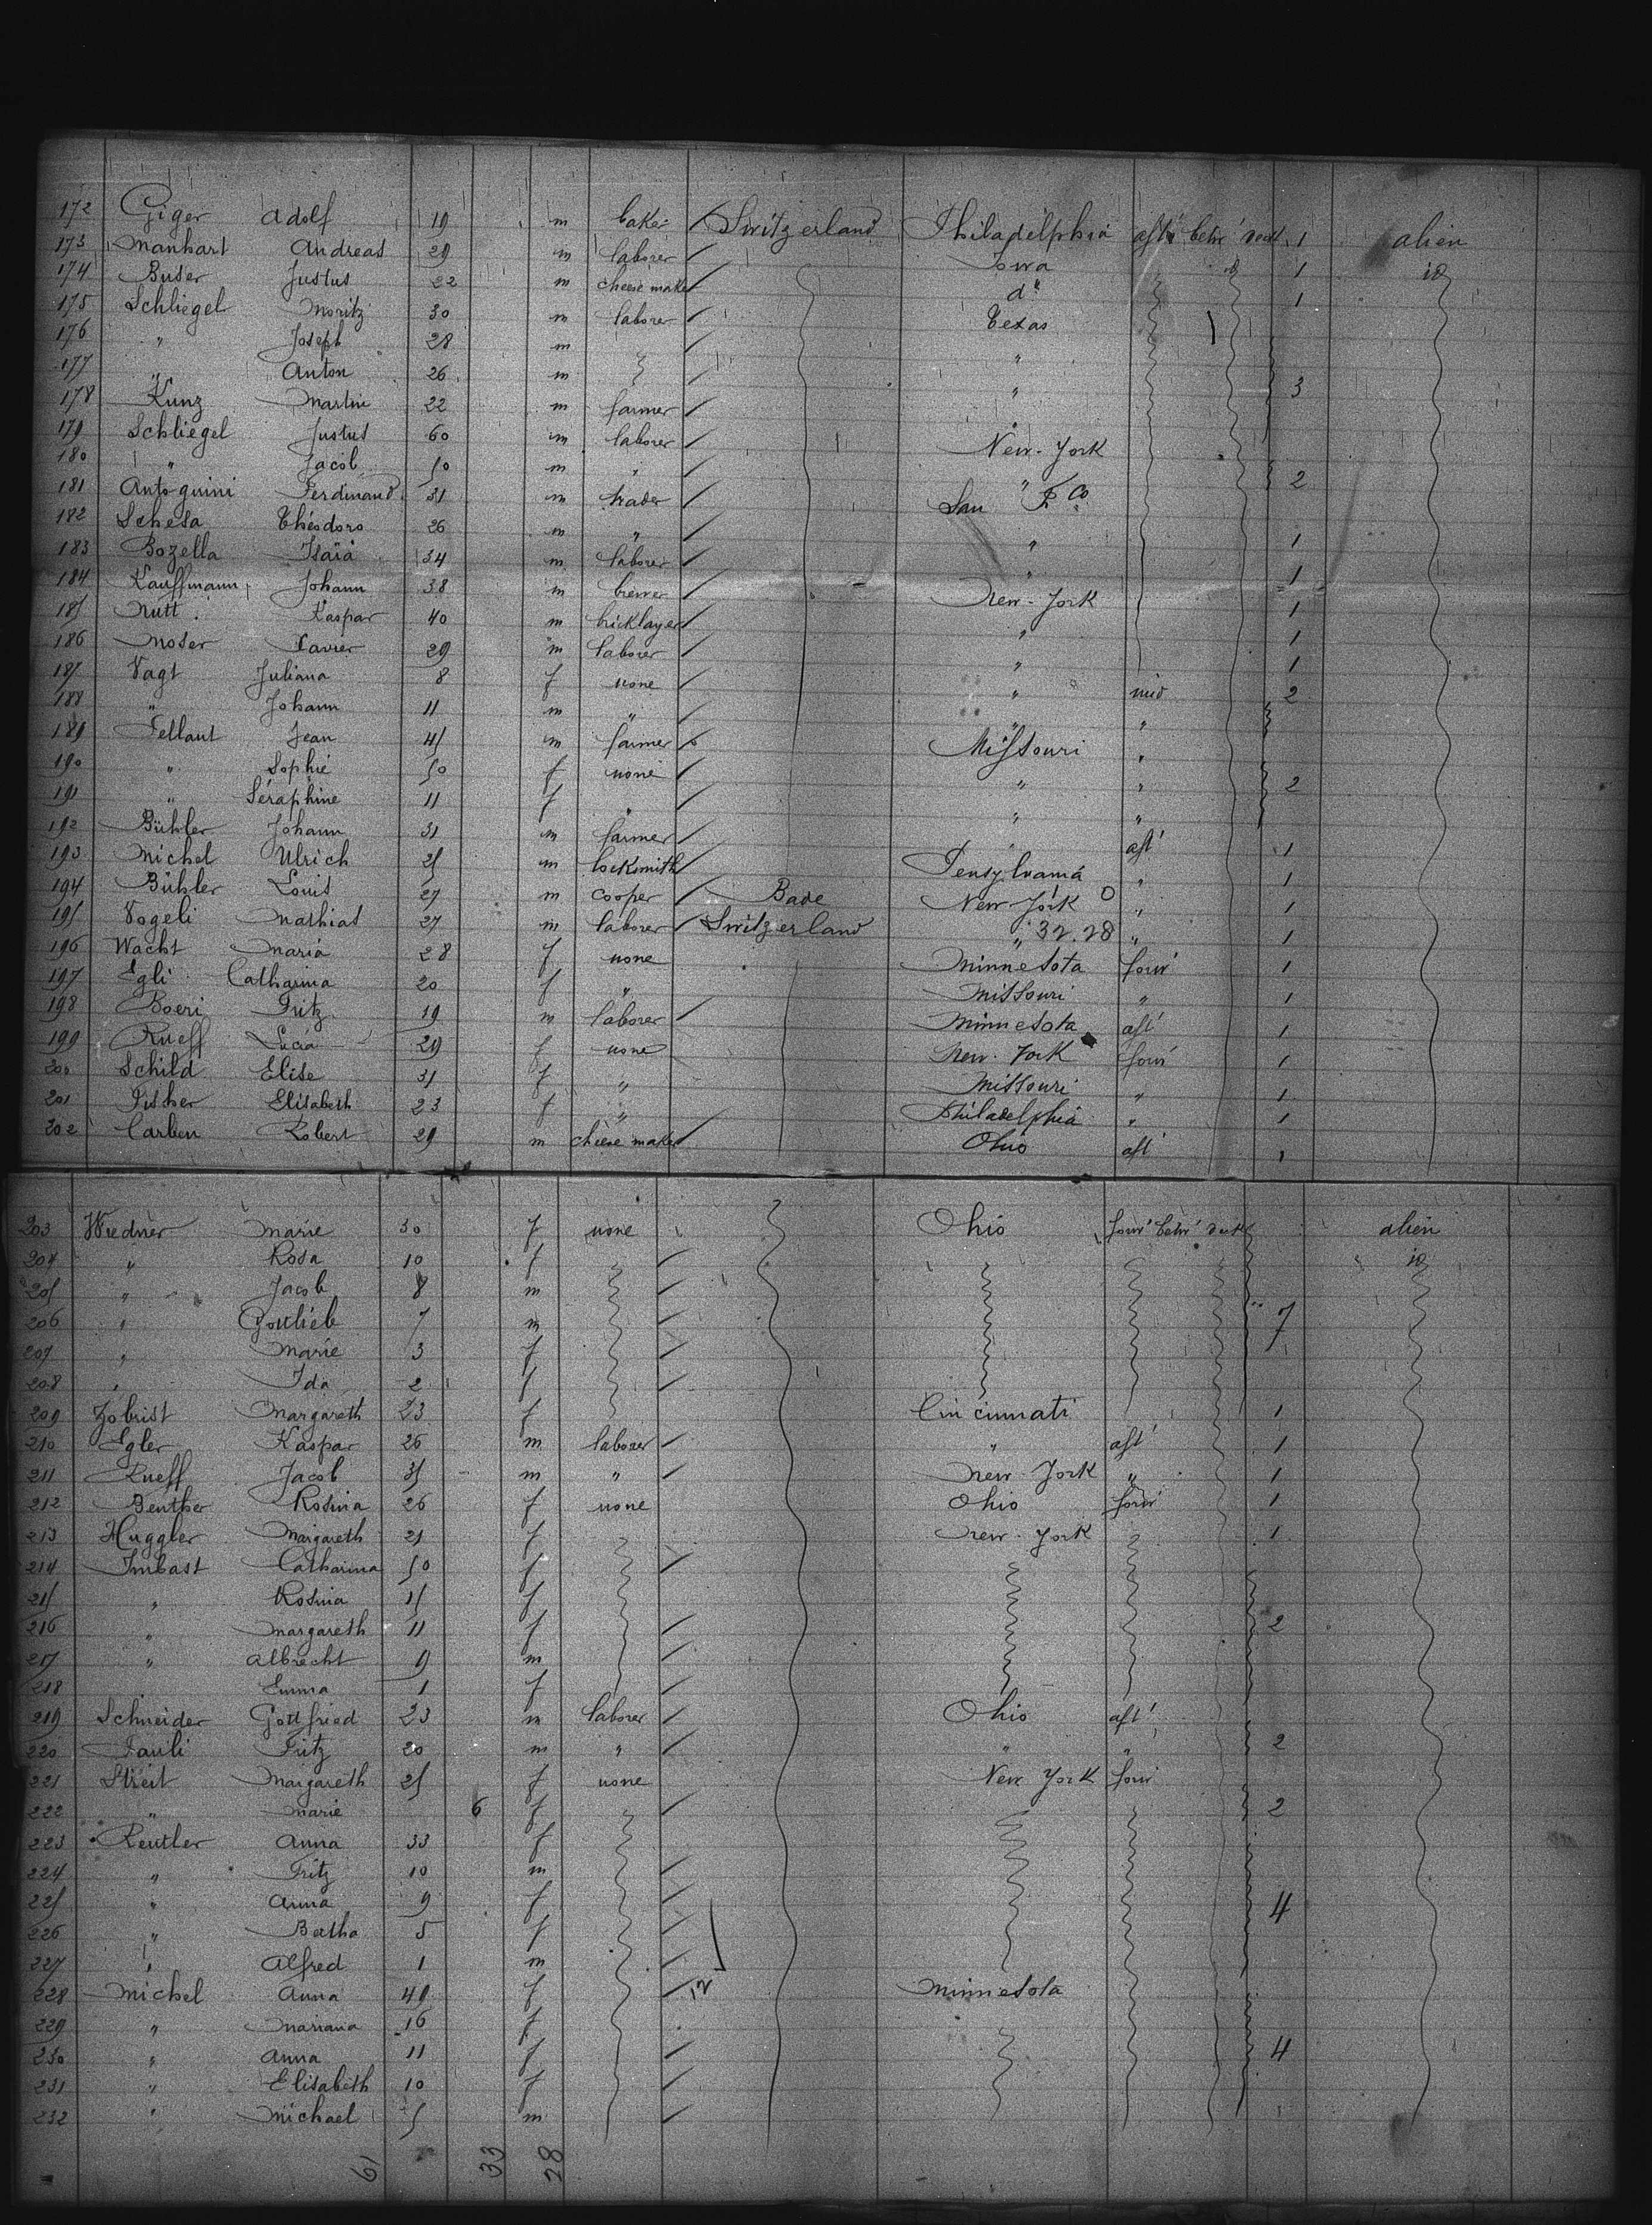 172 Giger Adolf 19 m baker Switzerland Philadelphia aft' betw' deck 1 alien
173 Manhart Andreas 29 m laborer Iowa 1 id
174 Buser Justus 22 m cheese maker d° 1
175 Schliegel Moritz 30 m laborer Texas
176 " Joseph 28 m "
177 " Anton 26 m " 3
178 Kunz Martin 22 m farmer "
179 Schliegel Justus 60 m laborer New-York
180 " Jacob 50 m " " 2
181 Antognini Ferdinand 31 m trader San Fco
182 Schesa Théodoro 26 m " " 1
183 Bozella Isaïa 34 m laborer " 1
184 Kauffmann Johann 38 m brewer New-York 1
185 Nutt Kaspar 40 m bricklayer " 1
186 Moser Xavier 29 m laborer " 1
187 Vagt Juliana 8 f none " mid 2
188 " Johann 11 m " " "
189 Fellant Jean 45 m farmer Missouri "
190 " Sophie 50 f none " " 2
191 " Séraphine 11 f " " "
192 Bühler Johann 31 m farmer " aft' 1
193 Michel Ulrich 25 m locksmith Pensylvania " 1
194 Bühler Louis 27 m cooper Bade New-York O " 1
195 Vogeli Mathias 27 m laborer Switzerland " 32.28 " 1
196 Wacht Maria 28 f none Minnesota forw' 1
197 Egli Catharina 20 f " Missouri " 1
198 Boeri Fritz 19 m laborer Minnesota aft' 1
199 Rueff Lucia 29 f none New-York forw' 1
200 Schild Elise 31 f " Missouri " 1
201 Fisher Elisabeth 23 f " Philadelphia " 1
202 Carlien Robert 29 m cheese maker Ohio aft' 1
203 Wiedner Marie 30 f none Ohio forw' betw' deck alien
204 " Rosa 10 f id
205 " Jacob 8 m
206 " Gottlieb 7 m 7
207 " Marie 3 f
208 " Ida 2 f
209 Zobrist Margareth 23 f Cincinnati 1
210 Egler Kaspar 26 m laborer " aft' 1
211 Rueff Jacob 35 m " New-York " 1
212 Benther Rosina 26 f none Ohio forw' 1
213 Huggler Margareth 21 f New-York 1
214 Imbast Catharina 50 f
215 " Rosina 15 f
216 " Margareth 11 f 2
217 " Albrecht 9 m
218 Emma 1 f
219 Schneider Gottfried 23 m laborer Ohio aft'
220 Fauli Fritz 20 m " " " 2
221 Streit Margareth 25 f none New York forw'
222 " Marie 6 f 2
223 Reutler Anna 33 f
224 " Fritz 10 m
225 " Anna 9 f 4
226 " Bertha 5 f
227 " Alfred 1 m
228 Michel Anna 49 f 12 Minnesota
229 " Mariana 16 f
230 " Anna 11 f 4
231 " Elisabeth 10 f
232 " Michael 5 m
61 33 28